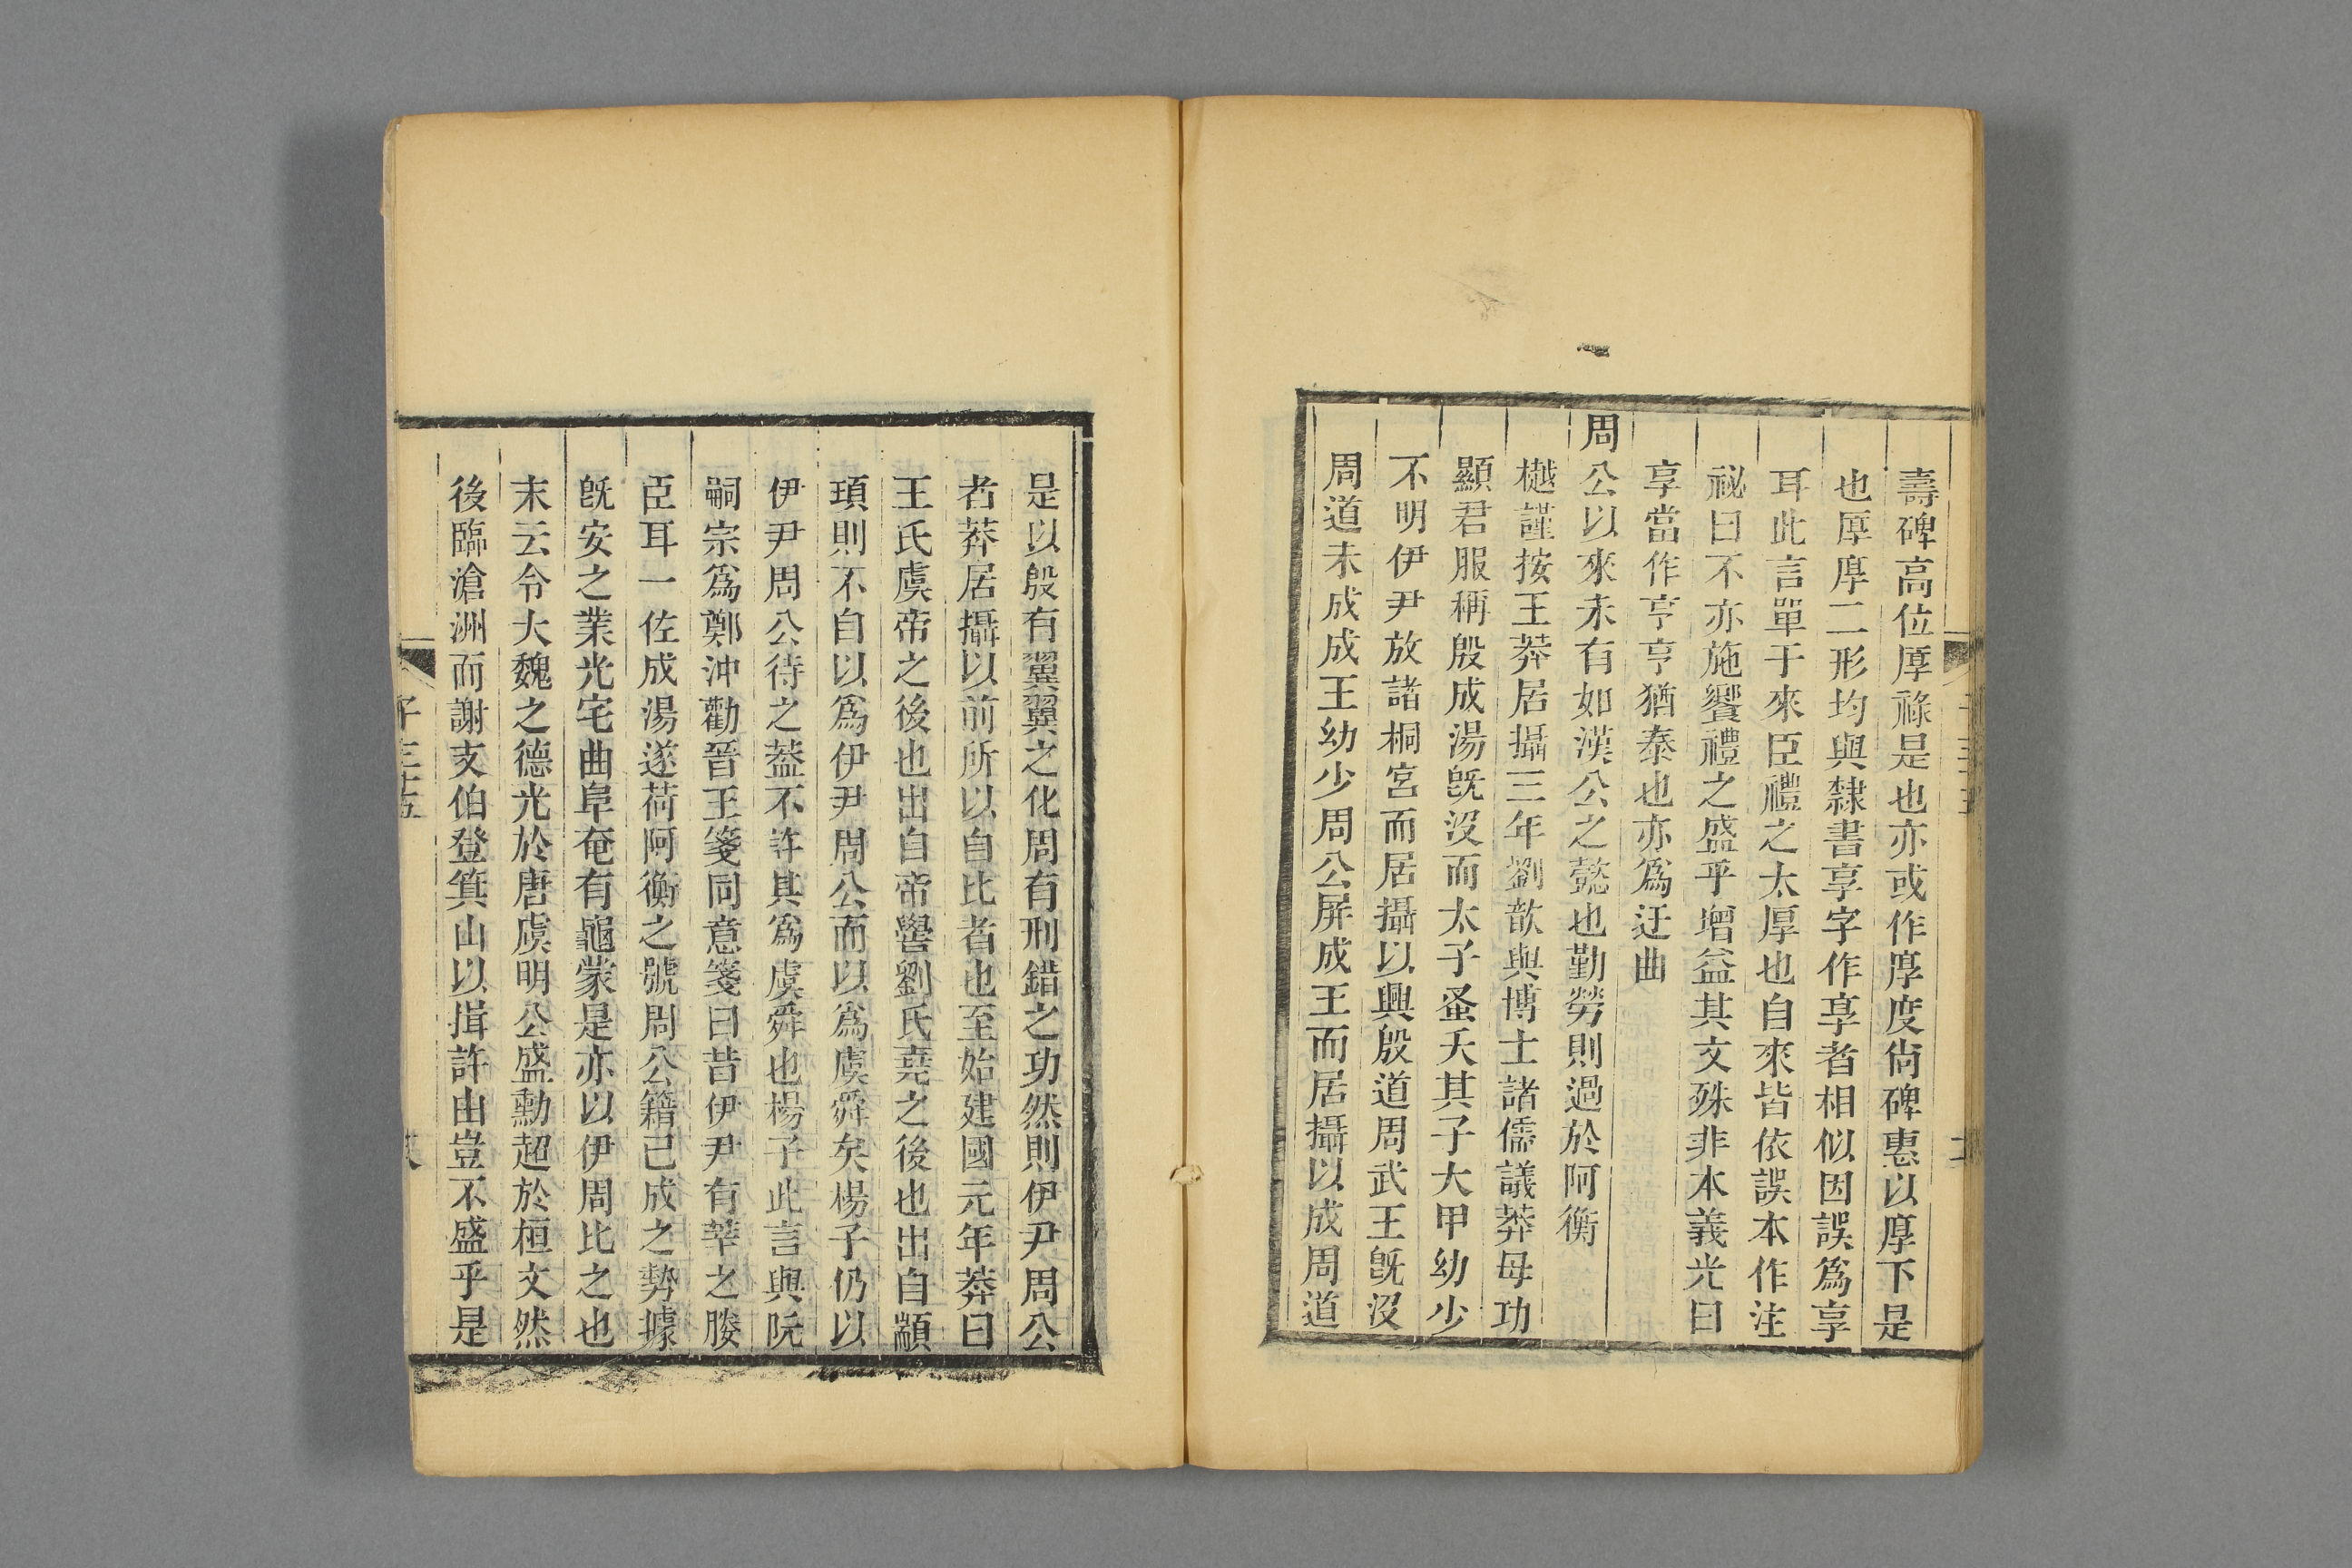 壽碑高位厚祿是也亦或作厚度尙碑惠以厚下是
也厚厚二形均與隸書享字作享者相似因誤爲享
耳此言單于來臣禮之太厚也自來皆依誤本作注
祕曰不亦施饗禮之盛乎增益其文殊非本義光曰
享當作亨亨猶泰也亦爲迂曲
周公以來未有如漢公之懿也勤勞則過於阿衡
樾謹按王莽居攝三年劉歆與博士諸儒議莽母功
顯君服稱殷成湯旣沒而太子蚤夭其子大甲幼少
不明伊尹放諸桐宮而居攝以興殷道周武王旣沒
周道未成成王幼少周公屏成王而居攝以成周道
是以殷有翼翼之化周有刑錯之功然則伊尹周公
者莽居攝以前所以自比者也至始建國元年莽曰
王氏虞帝之後也出自帝嚳劉氏堯之後也出自顓
頊則不自以爲伊尹周公而以爲虞舜矣楊子仍以
伊尹周公待之葢不許其爲虞舜也楊子此言與阮
嗣宗爲鄭沖勸晉王箋同意箋曰昔伊尹有莘之媵
臣耳一佐成湯遂荷阿衡之號周公籍已成之勢據
旣安之業光宅曲阜奄有龜蒙是亦以伊周比之也
末云令大魏之德光於唐虞明公盛勳超於桓文然
後臨滄洲而謝支伯登箕山以揖許由豈不盛乎是